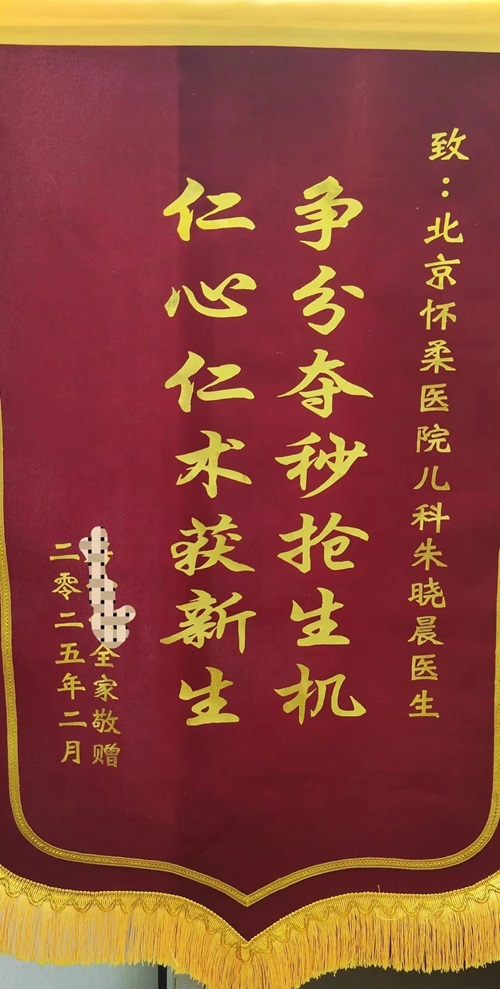 致：北京怀柔医院儿科朱晓晨医生
争分夺秒抢生机
仁心仁术获新生
全家敬赠
二零二五年二月